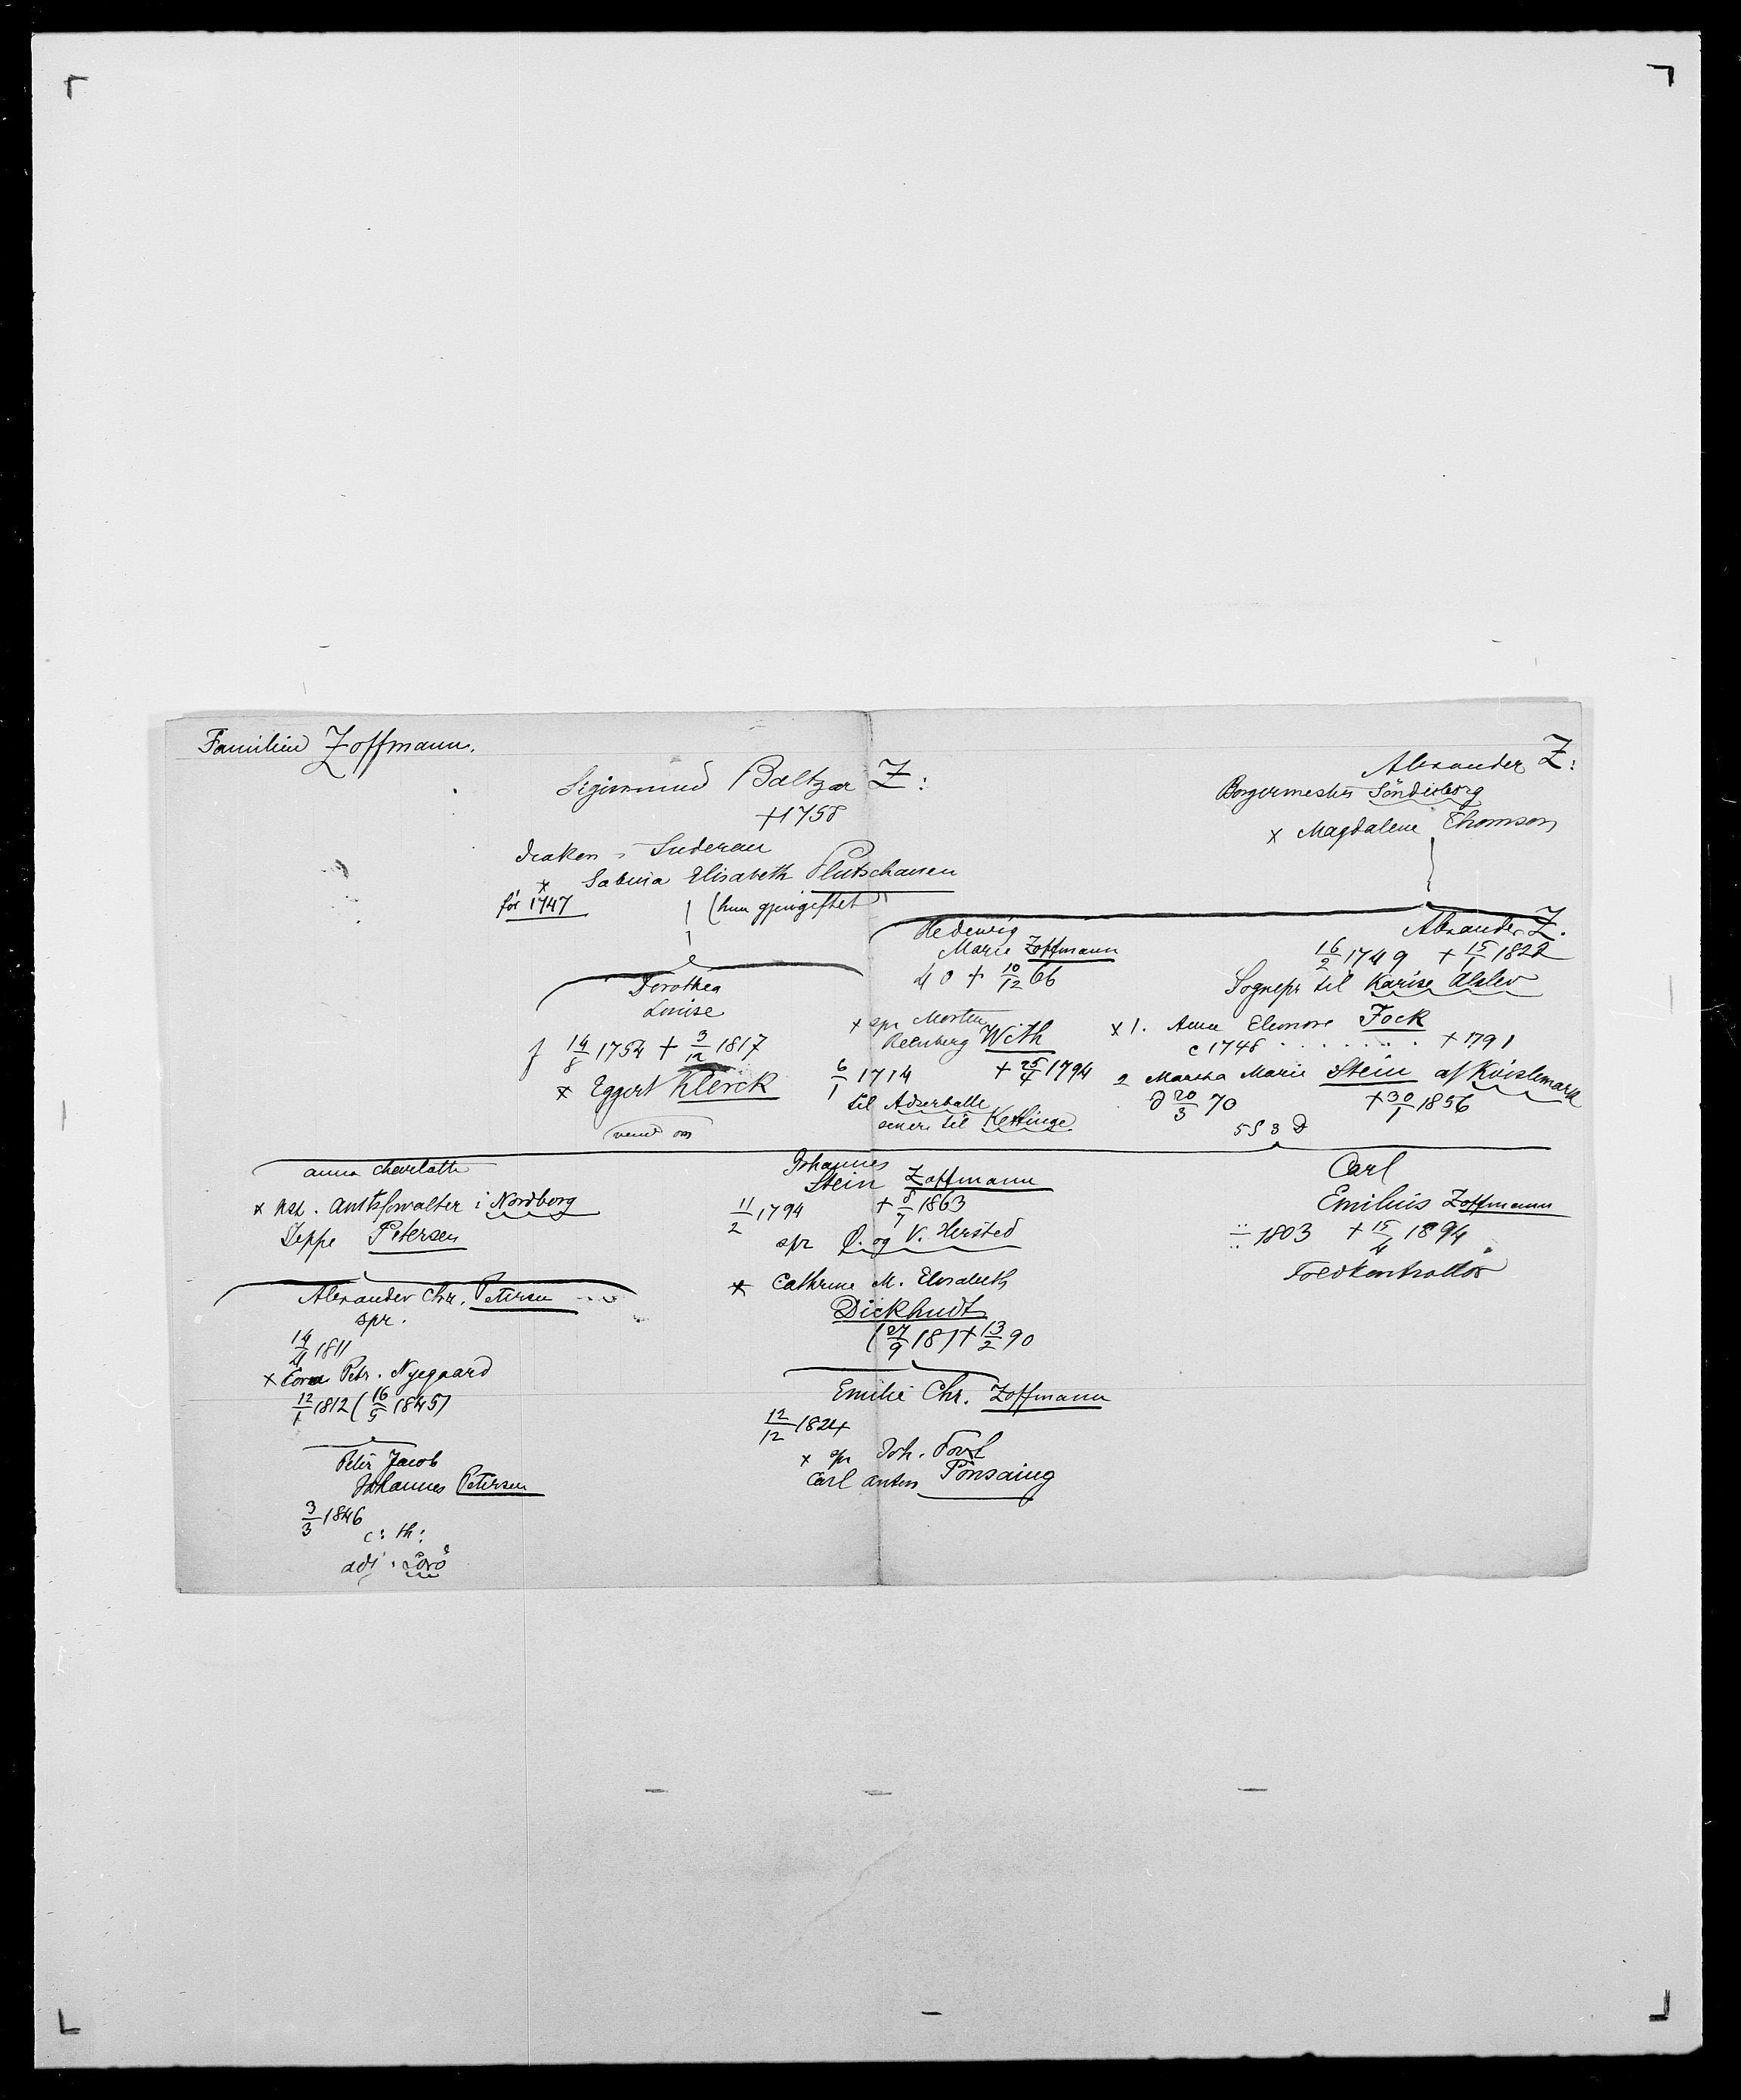 Familien Zoffmann.
Sigismund Baltzar Z:
+ 1758
Diakon i Suderau
x Sabina Elisabeth Plutschauen
før 1747
(hun gjengiftet
Dorothea
Louise
f 14/8 1754 + 3/12 1817
x Eggert Klerck
vend om
Alexander Z:
Borgermester Sönderborg
x Magdalene Thomson
Hedewig
Marie Zoffmann
40 + 10/12 66
x spr Morten
Reenberg With
6/1 1714 + 25/4 1794
til Adserballe
senere til Kettinge
Alexander Z.
16/2 1749 + 15/1 1822
Sognepr til Karise Alslev
x 1. Anna Elenore Fock
c 1748 . . . . . . . + 1791
2 Martha Marie Stein af Kvislemark
d 20/3 70 + 30/1 1856
5 S 3 D
Anna Charlotte
x kst. Amtsforvalter i Nordborg
Jeppe Petersen
Alexander Chr. Petersen
spr.
14/4 1811
x Petr. Nyegaard
12/1 1812 (16/9 1845)
Peter Jacob
Johannes Petersen
3/3 1846
c: th:
adj. Sorö
Johannes
Stein Zoffmann
11/2 1794 + 8/7 1863
spr Ø. og V. Hersted
x Cathrine M. Elisabeth
Dickhudt
(27/9 18) + 13/2 90
Emilie Chr. Zoffmann
12/12 1824
x spr Joh.
Carl Anton Ponsaing
Carl
Emilius Zoffmann
1803 + 15/4 1894
Toldkontrollör